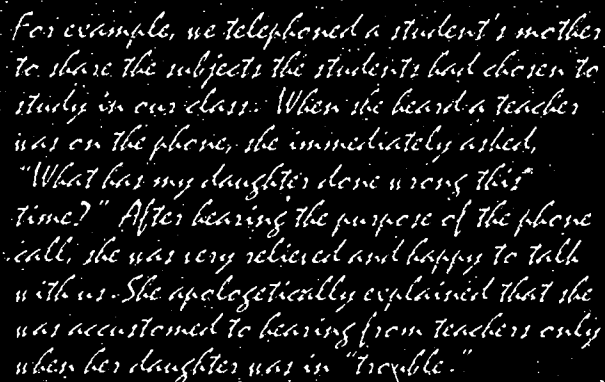 For example, we telephoned a student's mother
to share the subjects the students had chosen to
study in our class. When she heard a teacher
was on the phone, she immediately asked,
"What has my daughter done wrong this
time?" After hearing the purpose of the phone
call, she was very relieved and happy to talk
with us. She apologetically explained that she
was accustomed to hearing from teachers only
when her daughter was in "trouble."